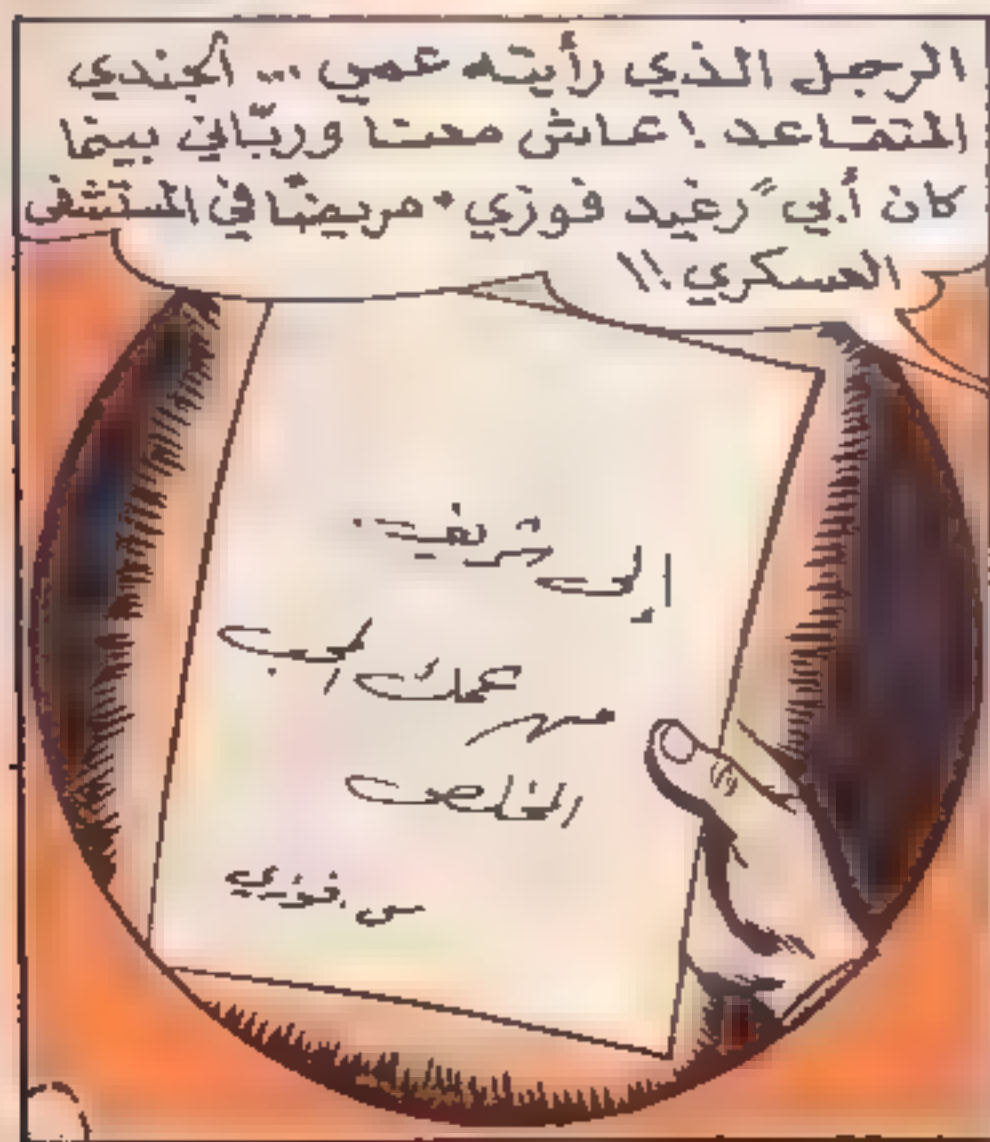 الرجل الذي رأيته عمي ... الجندي
المتقاعد ! عاش معنا وربّاني بينما
كان أبي "رغيد فوزي" مريضًا في المستشفى
العسكري !!
إلى شريف .
من عمك المحب
المخلص
س . فوزي